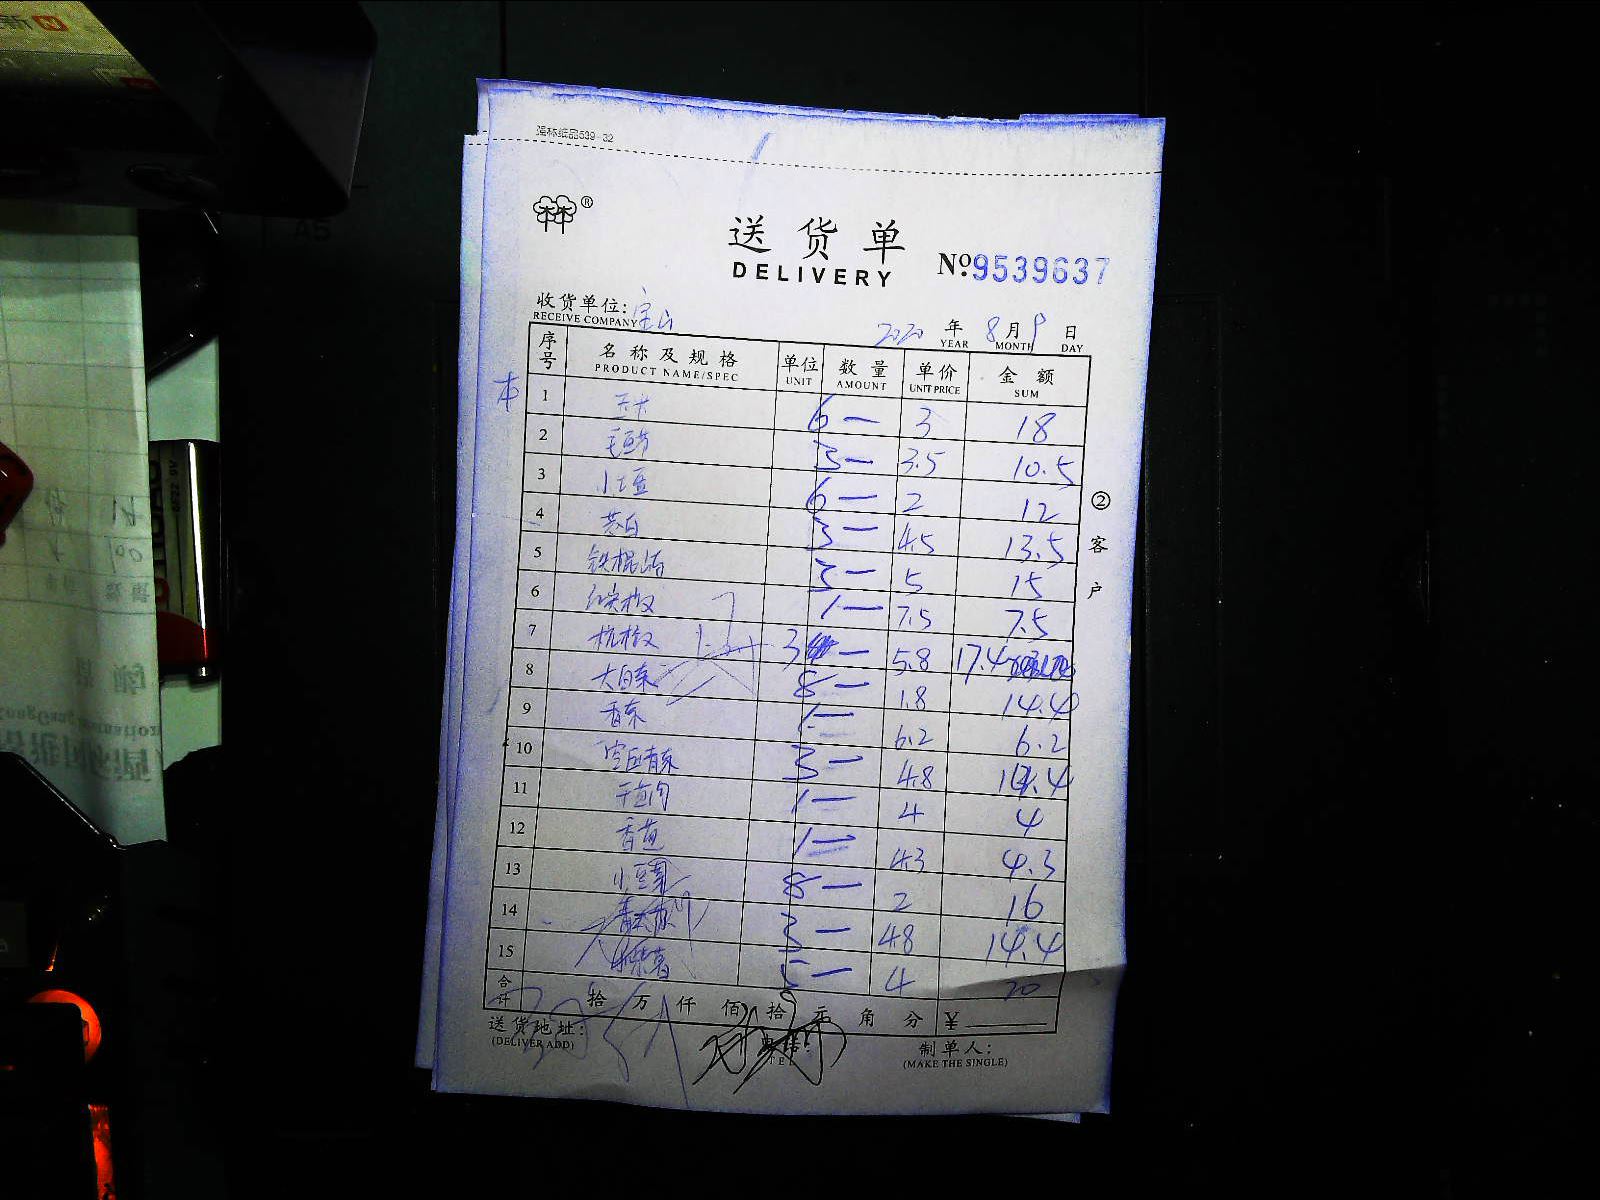 强林纸品539-32
®
送货单
DELIVERY
№9539637
收货单位: 宝山
RECEIVE COMPANY
2020 年 8 月 9 日
YEAR MONTH DAY
序号 名称及规格 单位 数量 单价 金额
PRODUCT NAME/SPEC UNIT AMOUNT UNIT PRICE SUM
本
1 玉米 6 — 3 18
2 毛豆节 3 — 3.5 10.5
3 小土豆 6 — 2 12
4 茭白 3 — 4.5 13.5
5 铁棍山 3 — 5 15
6 红尖椒 1 — 7.5 7.5
7 杭椒 3 — 5.8 17.4
8 大白菜 8 — 1.8 14.4
9 香菜 1 — 6.2 6.2
10 3 — 4.8 14.4
11 1 — 4 4
12 香 1 — 4.3 4.3
13 小 8 — 2 16
14 3 — 4.8 14.4
15 紫薯 5 — 4 20
合计 拾 万 仟 佰 拾 元 角 分 ¥
送货地址: 电话: 制单人:
(DELIVER ADD) TEL (MAKE THE SINGLE)
②客户
A5